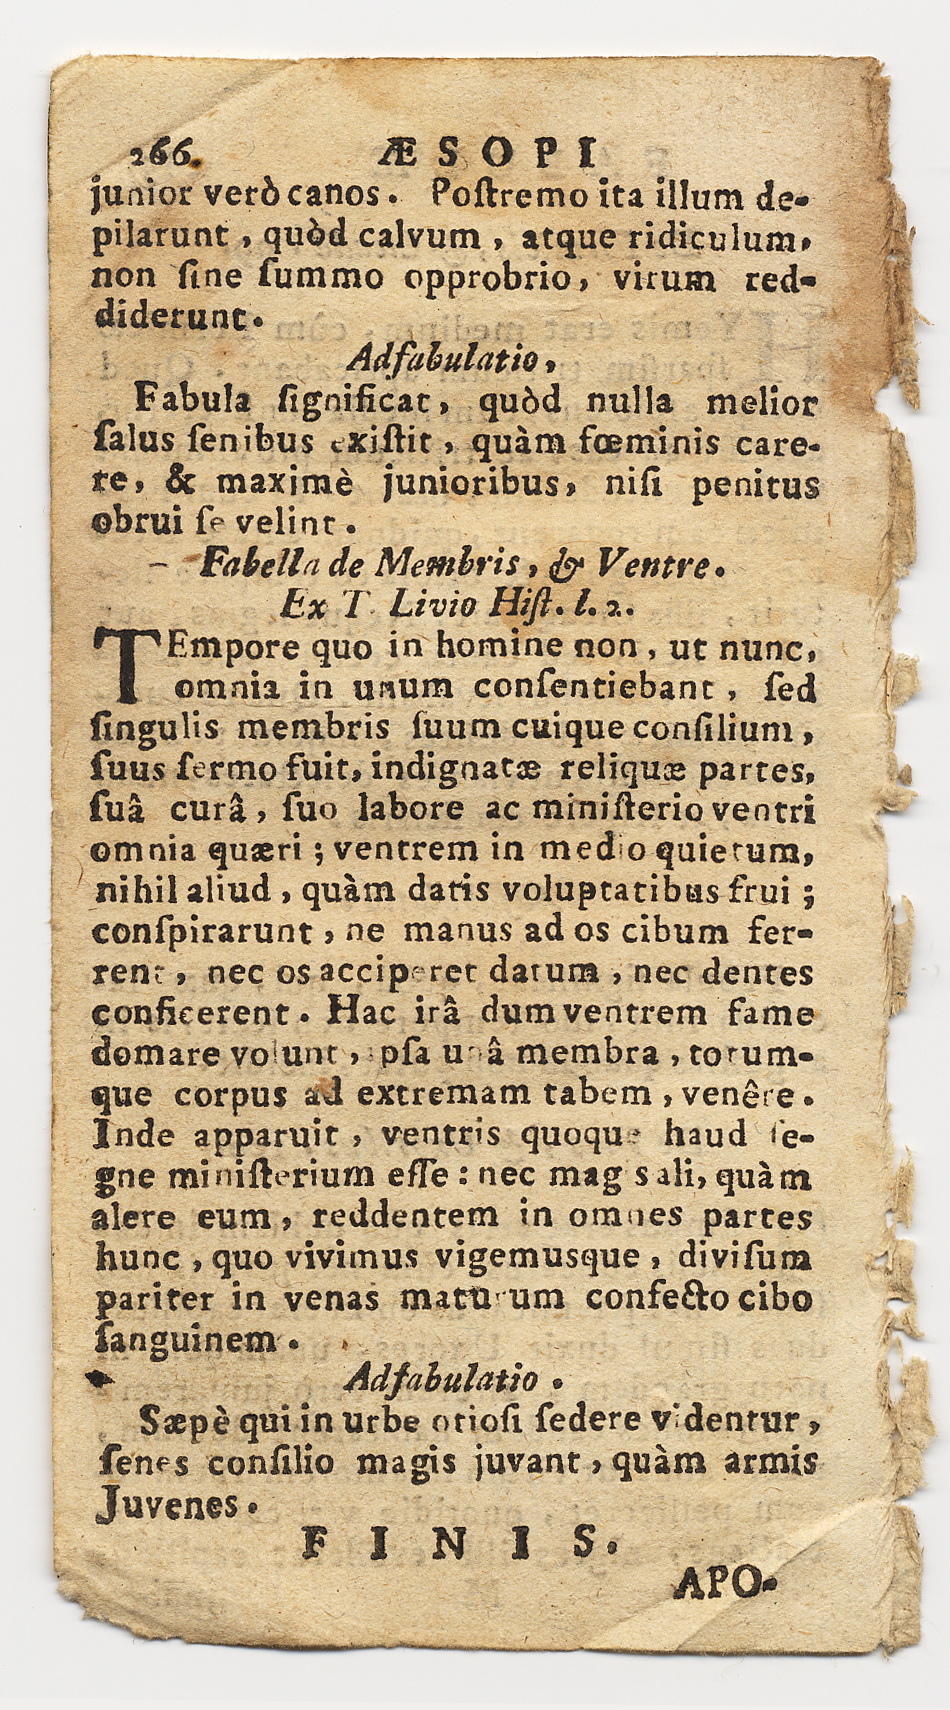 266. ÆSOPI
junior verò canos. Poſtremo ita illum de-
pilarunt, quòd calvum, atque ridiculum,
non ſine ſummo opprobrio, virum red-
diderunt.
Adfabulatio,
Fabula ſignificat, quòd nulla melior
ſalus ſenibus exiſtit, quàm fœminis care-
re, & maximè junioribus, niſi penitus
obrui ſe velint.
– Fabella de Membris, & Ventre.
Ex T Livio Hiſt. l. 2.
TEmpore quo in homine non, ut nunc,
omnia in unum conſentiebant, ſed
ſingulis membris ſuum cuique conſilium,
ſuus ſermo fuit, indignatæ reliquæ partes,
ſuâ curâ, ſuo labore ac miniſterio ventri
omnia quæri; ventrem in medio quietum,
nihil aliud, quàm datis voluptatibus frui;
conſpirarunt, ne manus ad os cibum fer-
rent, nec os acciperet datum, nec dentes
conficerent. Hac irâ dum ventrem fame
domare volunt, ipſa unâ membra, totum-
que corpus ad extremam tabem, venêre.
Inde apparuit, ventris quoque haud ſe-
gne miniſterium eſſe: nec magis ali, quàm
alere eum, reddentem in omnes partes
hunc, quo vivimus vigemusque, diviſum
pariter in venas maturum confecto cibo
ſanguinem.
Adfabulatio.
Sæpè qui in urbe otioſi ſedere videntur,
ſenes conſilio magis juvant, quàm armis
Juvenes.
FINIS.
APO-